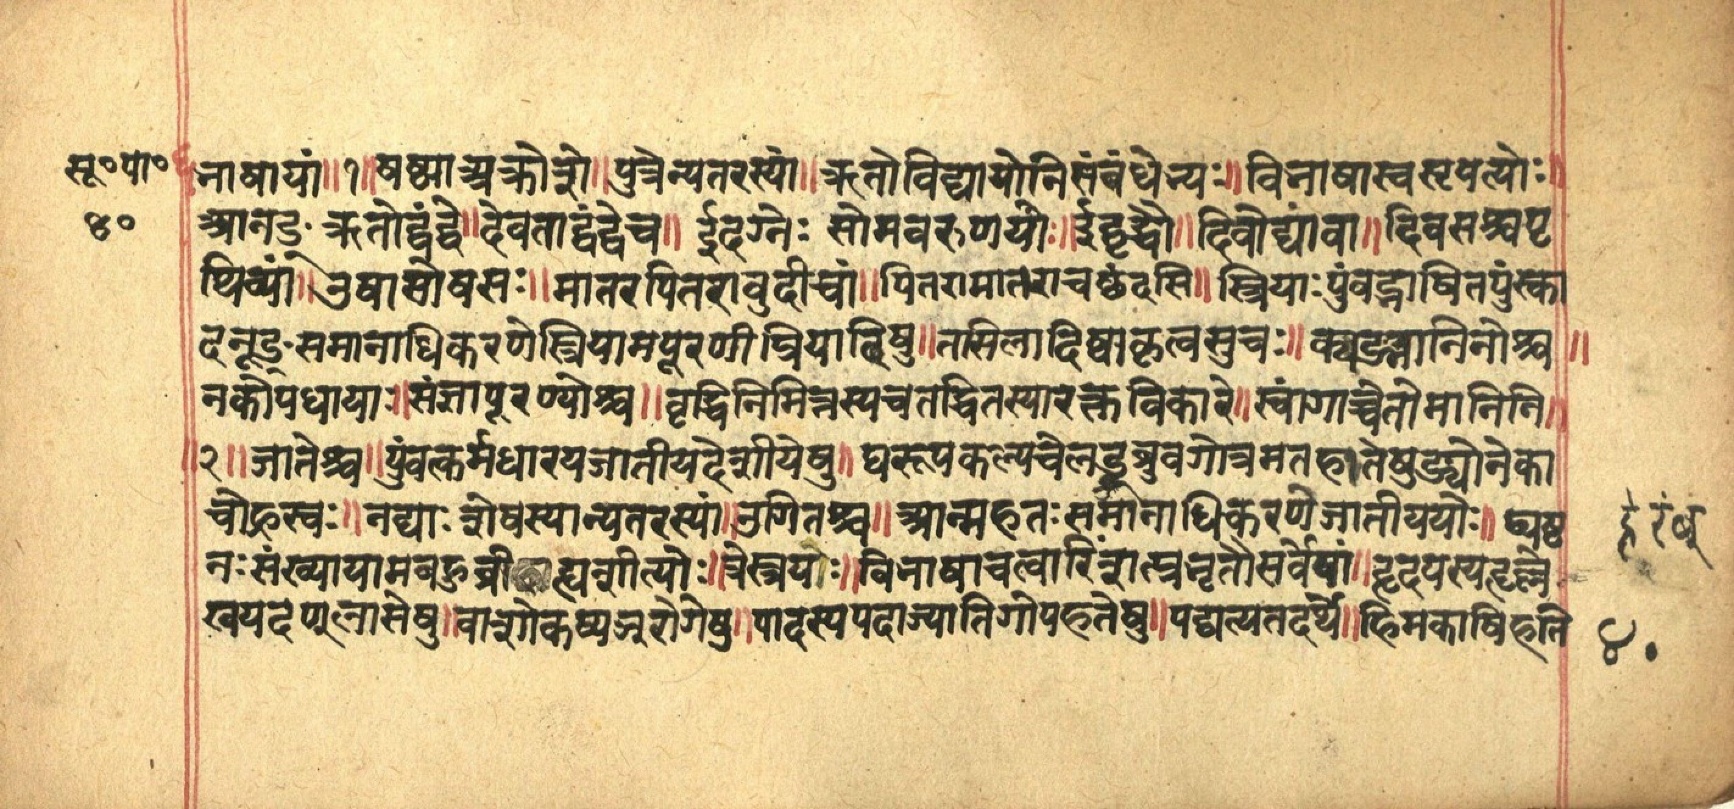 सू॰पा॰
४०
भाषायां॥१॥षष्ठ्याआक्रोशे॥पुत्रेन्यतरस्यां॥ऋतोविद्यायोनिसंबंधेभ्यः॥विभाषास्वसृपत्योः॥
आनङ्ऋतोद्वंद्वे॥देवताद्वंद्वेच॥ईदग्नेः सोमवरुणयोः॥ईद्वृद्धौ॥दिवोद्यावा॥दिवसश्चपृ
थिव्यां॥उषासोषसः॥मातरपितरावुदीचां॥पितरामातराचछंदसि॥स्त्रियाःपुंवद्भाषितपुंस्का
दनूङ्समानाधिकरणेस्त्रियामपूरणीप्रियादिषु॥तसिलादिष्वाकृत्वसुचः॥क्यङ्मानिनोश्च॥
नकोपधायाः॥संज्ञापूरण्योश्च॥वृद्धिनिमित्तस्यचतद्धितस्यारक्तविकारे॥स्वांगाच्चेतोमानिनि॥
२॥जातेश्च॥पुंवत्कर्मधारयजातीयदेशीयेषु॥घरूपकल्पचेलड्ब्रुवगोत्रमतहतेषुङ्योनेका
चोह्रस्वः॥नद्याःशेषस्यान्यतरस्यां॥उगितश्च॥आन्महतःसमानाधिकरणेजातीययोः॥द्व्यष्ट
नःसंख्यायामबहुव्रीह्यशीत्योः॥त्रेस्त्रयः॥विभाषाचत्वारिंशत्प्रभृतौसर्वेषां॥हृदयस्यहृल्ले
खयदण्लासेषु॥वाशोकष्यञ्रोगेषु॥पादस्यपदाज्यातिगोपहतेषु॥पद्यत्यतदर्थे॥हिमकाषिहति
४०